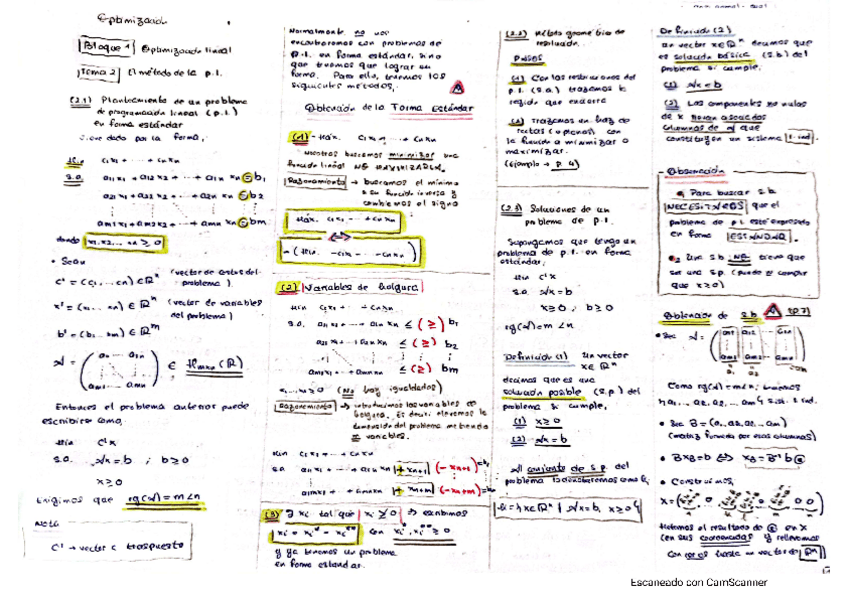 Optimización
Bloque 1 Optimización lineal
Tema 2 El método de la p.l.
(2.1) Planteamiento de un problema
de programación lineal (p.l.)
en forma estándar
Viene dado por la forma,
Min c1x1 + ··· + cnxn
s.a. a11x1 + a12x2 + ··· + a1n xn = b1
a21x1 + a22x2 + ··· + a2n xn = b2
am1x1 + am2x2 + ··· + amn xn = bm
donde x1, x2, ... xn ≥ 0
• Sean
c' = (c1, ··· cn) ∈ ℝⁿ (vector de costes del
problema).
x' = (x1, ··· xn) ∈ ℝⁿ (vector de variables
del problema)
b' = (b1, ··· bm) ∈ ℝᵐ
A = (a11 ··· a1n
am1 ··· amn) ∈ Mmxn(ℝ)
Entonces el problema anterior puede
escribirse como,
Min c'x
s.a. Ax = b ; b ≥ 0
x ≥ 0
Exigimos que rg(A) = m < n
Nota
c' → vector c traspuesto
Normalmente no nos
encontraremos con problemas de
p.l. en forma estándar, sino
que tenemos que lograr su
forma. Para ello, tenemos los
siguientes métodos,
Obtención de la Forma Estándar
(1) - Máx. c1x1 + ··· + cnxn
Nosotros buscamos minimizar una
función lineal NO MAXIMIZARLA.
Razonamiento → buscamos el mínimo
a su función inversa y
cambiamos el signo
Máx. c1x1 + ··· + cnxn
-(Min. -c1x1 - ··· - cnxn)
(2) Variables de holgura
Min c1x1 + ··· + cnxn
s.a. a11x1 + ··· + a1nxn ≤ (≥) b1
a21x1 + ··· + a2nxn ≤ (≥) b2
am1x1 + ··· + amnxn ≤ (≥) bm
x1, ... xn ≥ 0 (No hay igualdades)
Razonamiento → introducimos las variables de
holgura. Es decir, elevamos la
dimensión del problema metiendo
m variables.
Min c1x1 + ··· + cnxn
s.a. a11x1 + ··· + a1nxn + xn+1 (-xn+1) = b1
am1x1 + ··· + amnxn + xn+m (-xn+m) = bm
(3) ∃ xi tal que xi ≱ 0 ⇒ escribimos
xi = xi* - xi** con xi*, xi** ≥ 0
y ya tenemos un problema
en forma estándar.
(2.2) Método geométrico de
resolución.
PASOS
(1) Con las restricciones del
p.l. (s.a.) trazamos la
región que encierra
(2) Trazamos un haz de
rectas (opcional) con
la función a minimizar o
maximizar.
(Ejemplo → p.4)
(2.3) Soluciones de un
problema de p.l.
Supongamos que tengo un
problema de p.l. en forma
estándar,
Min c'x
s.a. Ax = b
x ≥ 0 ; b ≥ 0
rg(A) = m < n
Definición (1) un vector
x ∈ ℝⁿ
decimos que es una
solución posible (s.p.) del
problema si cumple,
(1) x ≥ 0
(2) Ax = b
Al conjunto de s.p. del
problema lo denotaremos como
= {x ∈ ℝⁿ | Ax = b, x ≥ 0}
Definición (2)
un vector x ∈ ℝⁿ decimos que
es solución básica (s.b.) del
problema si cumple,
(1) Ax = b
(2) Las componentes no nulas
de x llevan asociadas
columnas de A que
constituyen un sistema l. ind.
- Observación
• Para buscar s.b.
NECESITAMOS que el
problema de p.l. esté expresado
en forma ESTÁNDAR.
• Una s.b. NO tiene que
ser una s.p. (puede no cumplir
que x ≥ 0)
Obtención de s.b. (p.7)
• Sea A = (a11 a12 ··· a1n
am1 am2 ··· amn)
Como rg(A) = m < n, tenemos
{a1, a2, ..., am} sist. l. ind.
• Sea B = (a1, a2, ..., am)
(matriz formada por esas columnas)
• B xB = b ⇔ xB = B⁻¹ b
• Construimos,
Metemos el resultado de en x
(en sus coordenadas) y rellenamos
con ceros hasta un vector de ℝⁿ
Escaneado con CamScanner